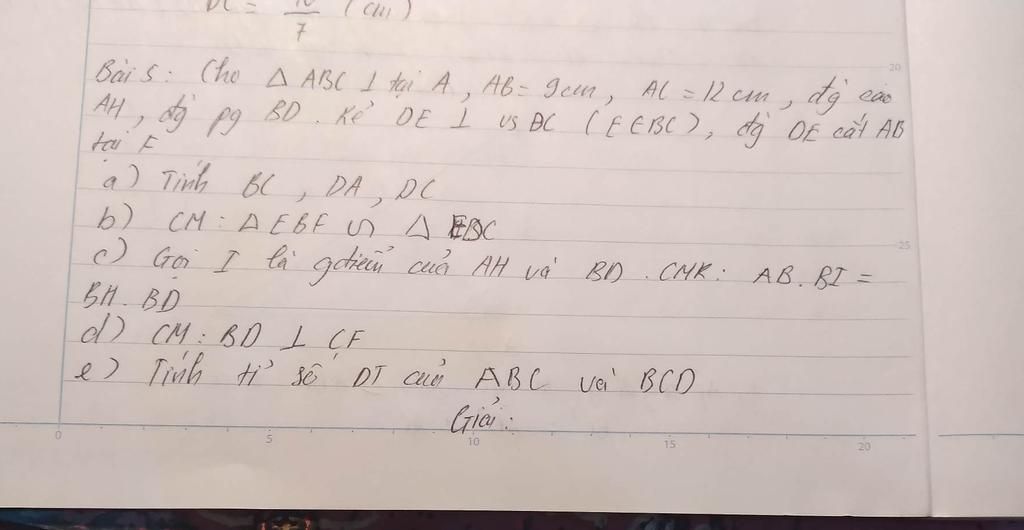 DC = 10/7 (cm)
Bài 5: Cho Δ ABC ⊥ tại A, AB = 9cm, AC = 12 cm, đg cao
20
AH, đg pg BD. Kẻ DE ⊥ vs BC (E∈BC), đg DE cắt AB
tại F
a) Tính BC, DA, DC
b) CM: Δ EBF ∽ Δ EDC
25
c) Gọi I là gđiểm của AH và BD. CMR: AB.BI =
BH.BD
d) CM: BD ⊥ CF
e) Tính tỉ số DT của ABC và BCD
Giải:
0 5 10 15 20